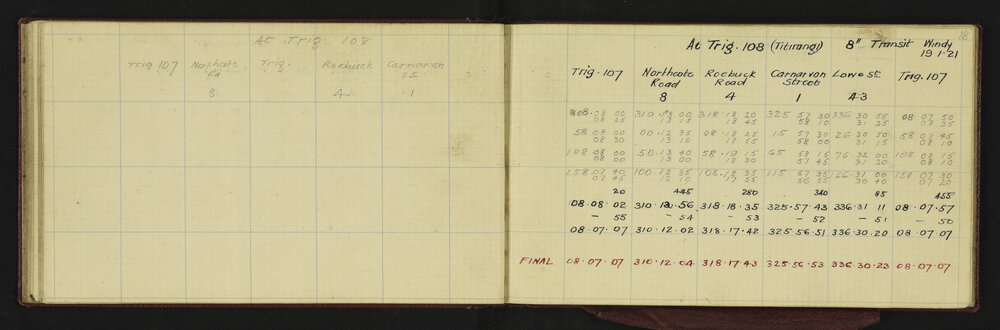 At Trig 108
Trig 107 Northcote Rd Trig. Roebuck Carnarvan St
3 4 1
18
At Trig. 108 (Titirangi) 8" Transit Windy
19.1.21
Trig. 107 Northcote Road Roebuck Road Carnarvon Street Lowe St. Trig. 107
8 4 1 43
308 · 08 00 310 · 13 00 318 · 18 20 325 57 30 336 30 55 08 07 50
08 25 13 15 18 45 58 10 31 25 08 35
58 08 00 00 · 12 35 08 · 18 25 15 57 30 26 30 50 58 07 45
08 30 13 10 17 55 58 00 31 15 08 10
108 · 08 00 50 · 13 40 58 · 19 15 65 58 15 76 32 00 108 08 15
08 00 13 00 18 30 57 45 31 20 08 10
158 07 40 100 · 12 35 108 · 18 35 115 57 35 126 · 31 00 158 07 30
07 45 12 10 17 55 56 55 30 40 07 20
20 445 280 340 85 455
08 · 08 · 02 310 · 12 · 56 318 · 18 · 35 325 · 57 · 43 336 · 31 11 08 · 07 · 57
— 55 — 54 — 53 — 52 — 51 — 50
08 · 07 · 07 310 · 12 · 02 318 · 17 · 42 325 56 · 51 336 · 30 · 20 08 · 07 · 07
FINAL 08 · 07 · 07 310 · 12 · 04 318 · 17 · 43 325 · 56 · 53 336 · 30 · 23 08 · 07 · 07